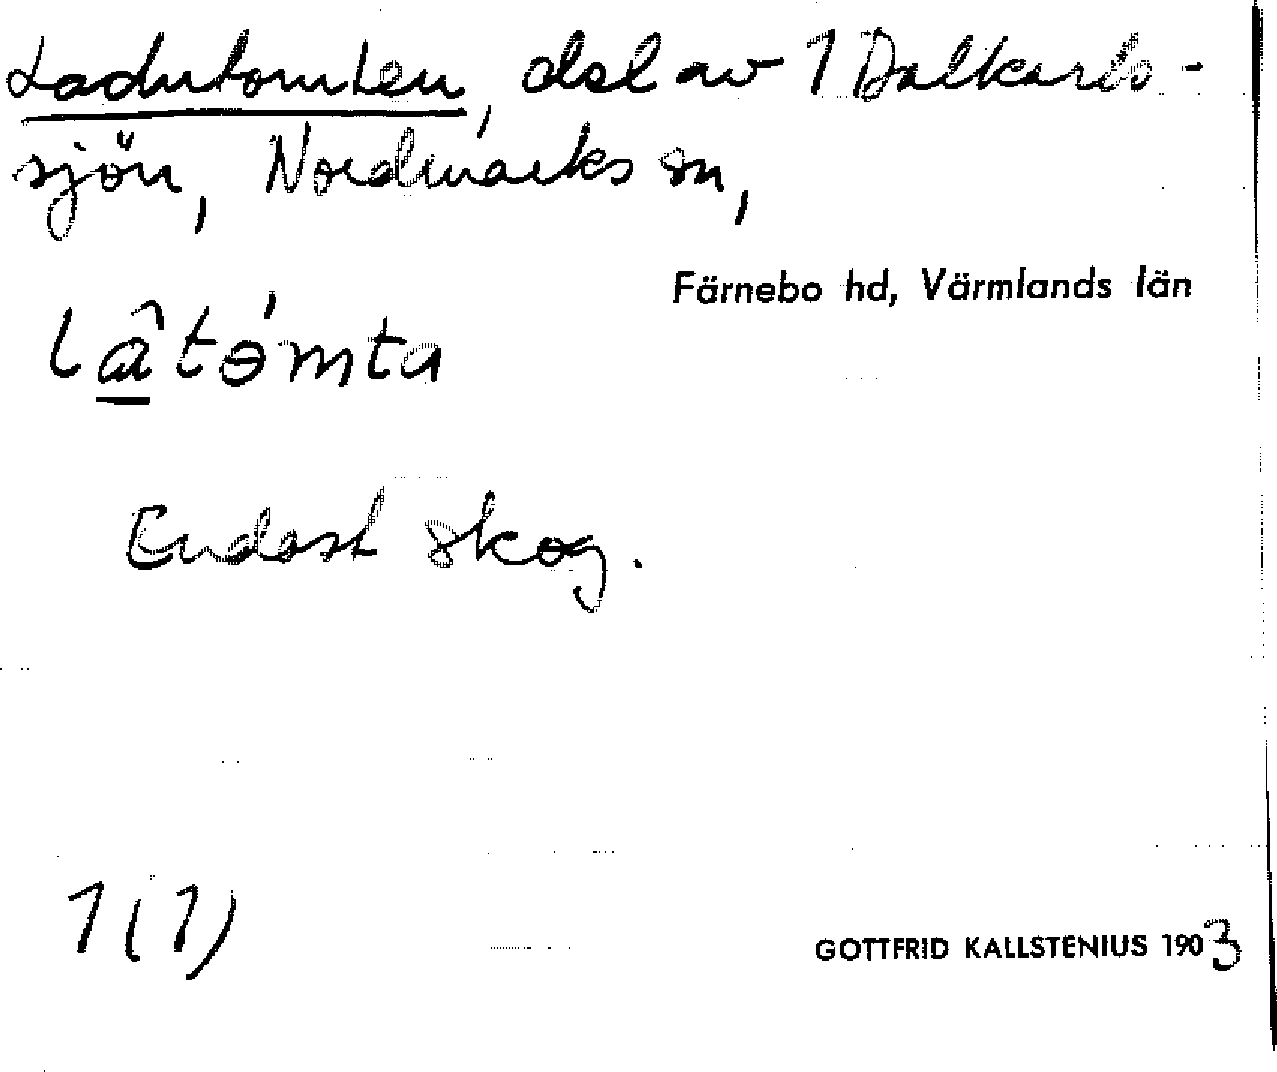 Ladutomten, del av 1 Dalkarls-
sjön, Nordmarks sn,
Färnebo hd, Värmlands län
lâtǿmta
Endast skog.
1(1)
GOTTFRID KALLSTENIUS 1903